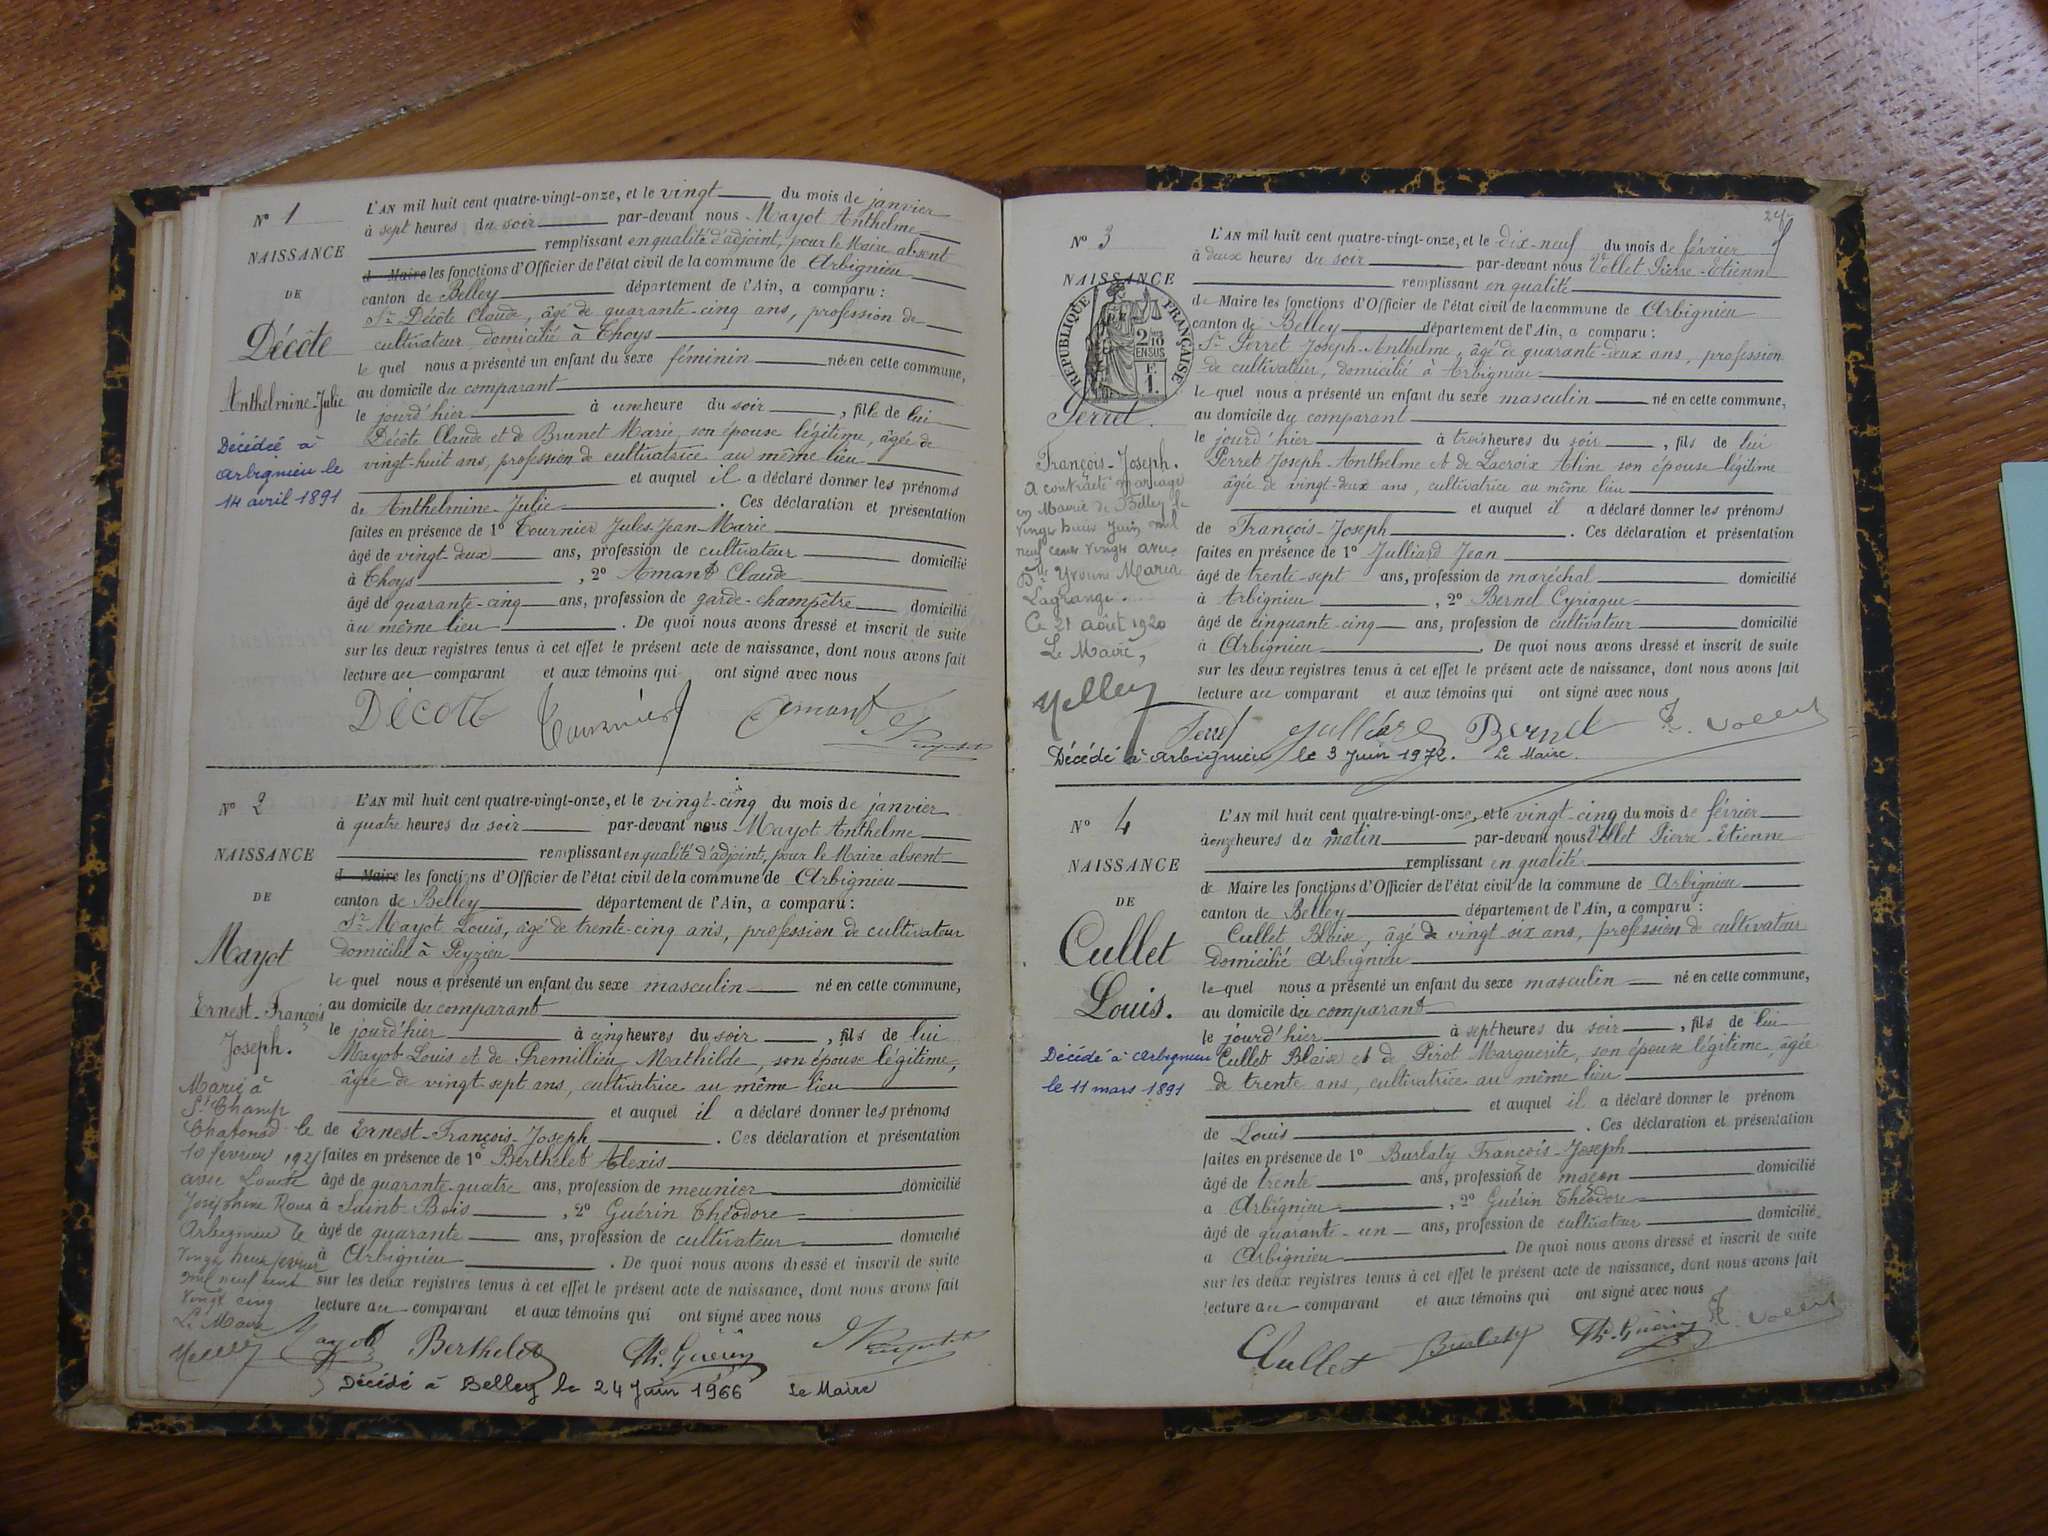 Nº 1
NAISSANCE
DE
Décôte
Anthelmine-Julie
Décédée à
Arbignieu le
14 avril 1891
L'AN mil huit cent quatre-vingt-onze, et le vingt du mois de janvier
à sept heures du soir par-devant nous Mayot Anthelme
remplissant en qualité d'adjoint, pour le Maire absent
d Maire les fonctions d'Officier de l'état civil de la commune de Arbignieu
canton de Belley département de l'Ain, a comparu :
Sr Décôte Claude, âgé de quarante-cinq ans, profession de
cultivateur domicilié à Thoys
le quel nous a présenté un enfant du sexe féminin née en cette commune,
au domicile du comparant
le jourd'hier à une heure du soir, fille de lui
Décôte Claude et de Brunet Marie son épouse légitime, âgée de
vingt-huit ans, profession de cultivatrice au même lieu
et auquel il a déclaré donner les prénoms
de Anthelmine-Julie. Ces déclaration et présentation
faites en présence de 1º Tournier Jules-Jean-Marie
âgé de vingt deux ans, profession de cultivateur domicilié
à Thoys, 2º Amant Claude
âgé de quarante-cinq ans, profession de garde-champêtre domicilié
au même lieu. De quoi nous avons dressé et inscrit de suite
sur les deux registres tenus à cet effet le présent acte de naissance, dont nous avons fait
lecture au comparant et aux témoins qui ont signé avec nous
Décote Tournier Amant
Nº 2
NAISSANCE
DE
Mayot
Ernest-François
Joseph.
Marié à
St Champ
Chatonod le
10 février 1925
avec Louise
Joséphine Roux
Arbignieu le
vingt deux février
mil neuf cent
vingt cinq
Le Maire
L'AN mil huit cent quatre-vingt-onze, et le vingt-cinq du mois de janvier
à quatre heures du soir par-devant nous Mayot Anthelme
remplissant en qualité d'adjoint, pour le Maire absent
d Maire les fonctions d'Officier de l'état civil de la commune de Arbignieu
canton de Belley département de l'Ain, a comparu :
Sr Mayot Louis, âgé de trente-cinq ans, profession de cultivateur
domicilié à Peyzieu
le quel nous a présenté un enfant du sexe masculin né en cette commune,
au domicile du comparant
le jourd'hier à cinq heures du soir, fils de lui
Mayot Louis et de Premillieu Mathilde, son épouse légitime,
âgée de vingt sept ans, cultivatrice au même lieu
et auquel il a déclaré donner les prénoms
de Ernest-François-Joseph. Ces déclaration et présentation
faites en présence de 1º Berthelet Alexis
âgé de quarante-quatre ans, profession de meunier domicilié
à Saint-Bois, 2º Guérin Théodore
âgé de quarante ans, profession de cultivateur domicilié
à Arbignieu. De quoi nous avons dressé et inscrit de suite
sur les deux registres tenus à cet effet le présent acte de naissance, dont nous avons fait
lecture au comparant et aux témoins qui ont signé avec nous
Mayot Berthelet Th. Guérin
Décédé à Belley le 24 Juin 1966 Le Maire
Nº 3
NAISSANCE
RÉPUBLIQUE FRANÇAISE
2/10 EN SUS
F. 1.
Perret.
François-Joseph.
A contracté mariage
en Mairie de Belley le
vingt huit Juin mil
neuf cent vingt avec
Dlle Yvonne Maria
Lagrange.
Ce 21 août 1920
Le Maire,
L'AN mil huit cent quatre-vingt-onze, et le dix-neuf du mois de février
à deux heures du soir par-devant nous Vollet Pierre-Etienne
remplissant en qualité
de Maire les fonctions d'Officier de l'état civil de la commune de Arbignieu
canton de Belley département de l'Ain, a comparu :
Sr Perret Joseph-Anthelme, âgé de quarante-deux ans, profession
de cultivateur, domicilié à Arbignieu
le quel nous a présenté un enfant du sexe masculin né en cette commune,
au domicile du comparant
le jourd'hier à trois heures du soir, fils de lui
Perret Joseph-Anthelme et de Lacroix Aline son épouse légitime
âgée de vingt-deux ans, cultivatrice au même lieu
et auquel il a déclaré donner les prénoms
de François-Joseph. Ces déclaration et présentation
faites en présence de 1º Julliard Jean
âgé de trente-sept ans, profession de maréchal domicilié
à Arbignieu, 2º Bernel Cyriaque
âgé de cinquante-cinq ans, profession de cultivateur domicilié
à Arbignieu. De quoi nous avons dressé et inscrit de suite
sur les deux registres tenus à cet effet le présent acte de naissance, dont nous avons fait
lecture au comparant et aux témoins qui ont signé avec nous
Perret Julliard Bernel Vollet
Décédé à Arbignieu le 3 Juin 1972. Le Maire.
Nº 4
NAISSANCE
DE
Cullet
Louis.
Décédé à Arbignieu
le 11 mars 1891
L'AN mil huit cent quatre-vingt-onze, et le vingt-cinq du mois de février
à onze heures du matin par-devant nous Vollet Pierre-Etienne
remplissant en qualité
de Maire les fonctions d'Officier de l'état civil de la commune de Arbignieu
canton de Belley département de l'Ain, a comparu :
Cullet Blaise, âgé de vingt-six ans, profession de cultivateur
domicilié Arbignieu
le quel nous a présenté un enfant du sexe masculin né en cette commune,
au domicile du comparant
le jourd'hier à sept heures du soir, fils de lui
Cullet Blaise et de Pirot Marguerite, son épouse légitime, âgée
de trente ans, cultivatrice au même lieu
et auquel il a déclaré donner le prénom
de Louis. Ces déclaration et présentation
faites en présence de 1º Burlaty François-Joseph
âgé de trente ans, profession de maçon domicilié
à Arbignieu, 2º Guérin Théodore
âgé de quarante-un ans, profession de cultivateur domicilié
a Arbignieu. De quoi nous avons dressé et inscrit de suite
sur les deux registres tenus à cet effet le présent acte de naissance, dont nous avons fait
lecture au comparant et aux témoins qui ont signé avec nous
Cullet Burlaty Th. Guérin Vollet